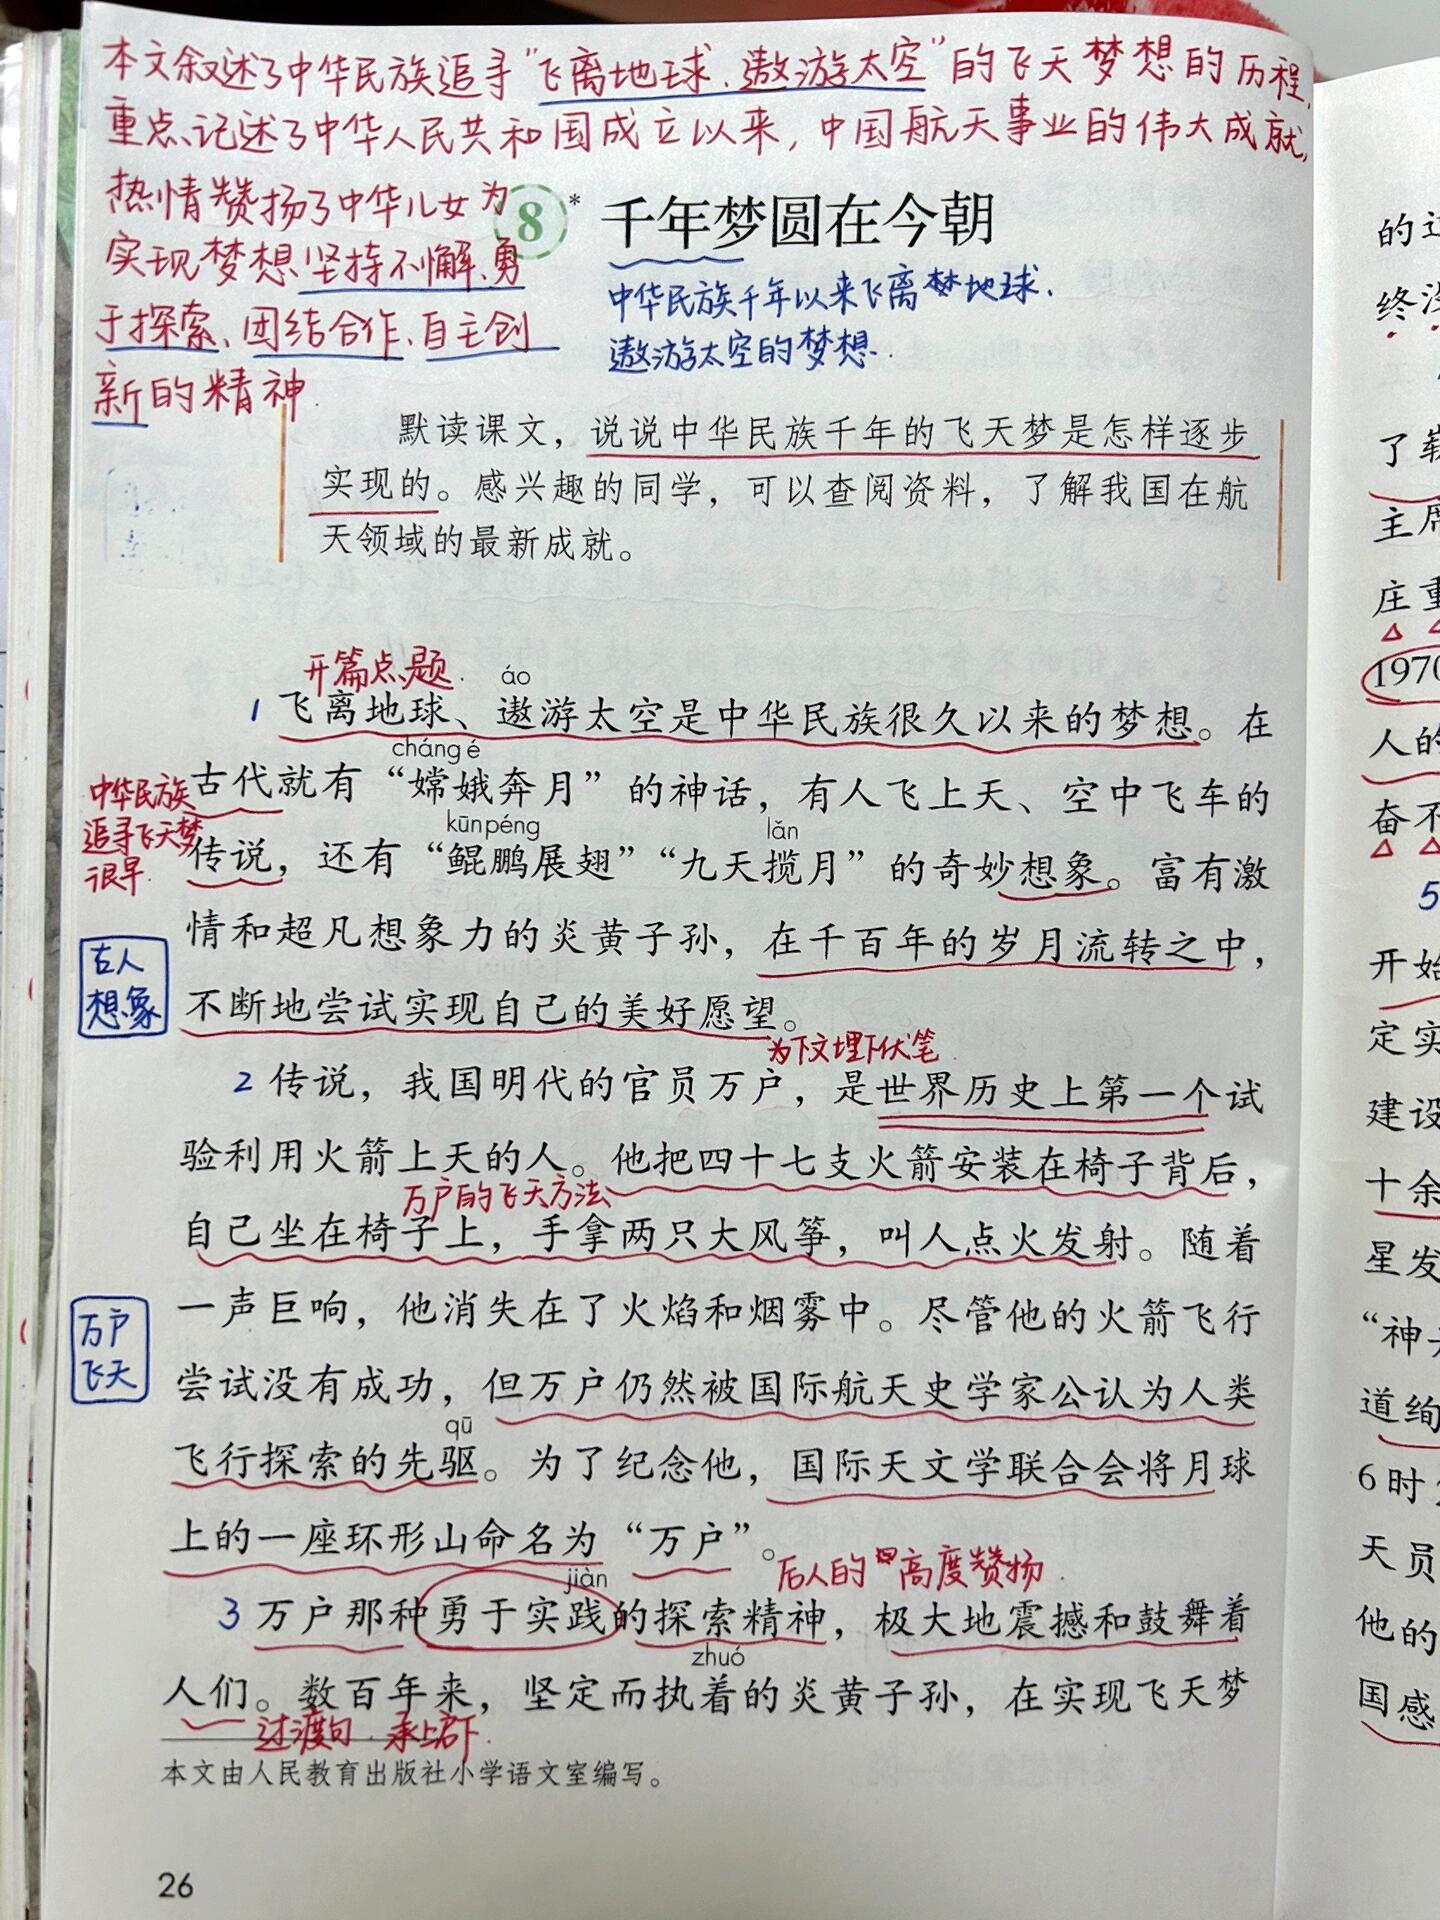 本文叙述了中华民族追寻“飞离地球、遨游太空”的飞天梦想的历程,
重点记述了中华人民共和国成立以来,中国航天事业的伟大成就,
热情赞扬了中华儿女为
实现梦想坚持不懈、勇
于探索、团结合作、自主创
新的精神.
8* 千年梦圆在今朝
中华民族千年以来飞离地球、
遨游太空的梦想.
默读课文，说说中华民族千年的飞天梦是怎样逐步
实现的。感兴趣的同学，可以查阅资料，了解我国在航
天领域的最新成就。
开篇点题.
áo
1 飞离地球、遨游太空是中华民族很久以来的梦想。在
cháng é
古代就有“嫦娥奔月”的神话，有人飞上天、空中飞车的
中华民族
追寻飞天梦
很早.
kūn péng lǎn
传说，还有“鲲鹏展翅”“九天揽月”的奇妙想象。富有激
情和超凡想象力的炎黄子孙，在千百年的岁月流转之中，
古人
想象
不断地尝试实现自己的美好愿望。
为下文埋下伏笔.
2 传说，我国明代的官员万户，是世界历史上第一个试
验利用火箭上天的人。他把四十七支火箭安装在椅子背后，
万户的飞天方法
自己坐在椅子上，手拿两只大风筝，叫人点火发射。随着
一声巨响，他消失在了火焰和烟雾中。尽管他的火箭飞行
万户
飞天
尝试没有成功，但万户仍然被国际航天史学家公认为人类
qū
飞行探索的先驱。为了纪念他，国际天文学联合会将月球
上的一座环形山命名为“万户”。
后人的高度赞扬.
jiàn
3 万户那种勇于实践的探索精神，极大地震撼和鼓舞着
zhuó
人们。数百年来，坚定而执着的炎黄子孙，在实现飞天梦
过渡句.承上启下.
本文由人民教育出版社小学语文室编写。
26
的
终
了
主席
庄重
1970
人的
奋不
5
开始
定实
建设
十余
星发
“神
道绚
6时
天员
他的
国感